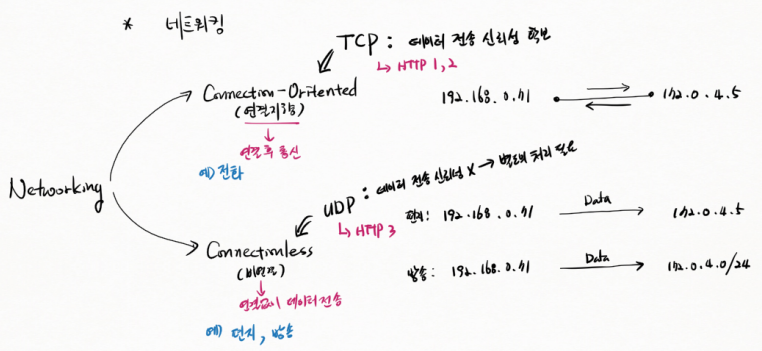 * 네트워킹
TCP : 데이터 전송 신뢰성 확보
↳ HTTP 1, 2
Connection-Oritented
(연결지향)
↓
연결 후 통신
예) 전화
192.168.0.71 172.0.4.5
Networking
UDP : 데이터 전송 신뢰성 X → 별도의 처리 필요
↳ HTTP 3
Connectionless
(비연결)
↓
연결없이 데이터전송
예) 편지, 방송
편지: 192.168.0.71 Data 172.0.4.5
방송: 192.168.0.71 Data 172.0.4.0/24